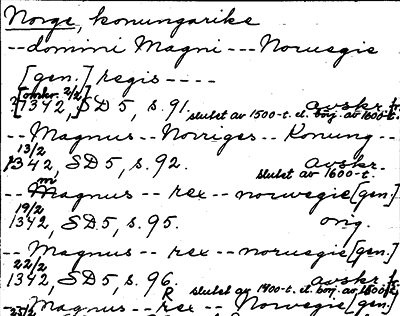 Norge, konungarike
--domini Magni --- Noruegie
[gen.] regis ----
[omkr. 2/2]
?1342, SD 5, s. 91. avskr. fr.
slutet av 1500-t. el. börj. av 1600-t.
-- Magnus -- Norriges -- Konung --
13/2
1342, SD 5, s. 92. avskr.
slutet av 1600-t.
-- Magnus -- rex -- norwegie [gen.]
19/2
1342, SD 5, s. 95. orig.
-- Magnus -- rex -- noruegie [gen.]
22/2
1342, SD 5, s. 96. avskr. fr.
slutet av 1400-t. el. börj. av 1500-t.
-- Magnus -- Rex -- Norwegie [gen.]
23/2